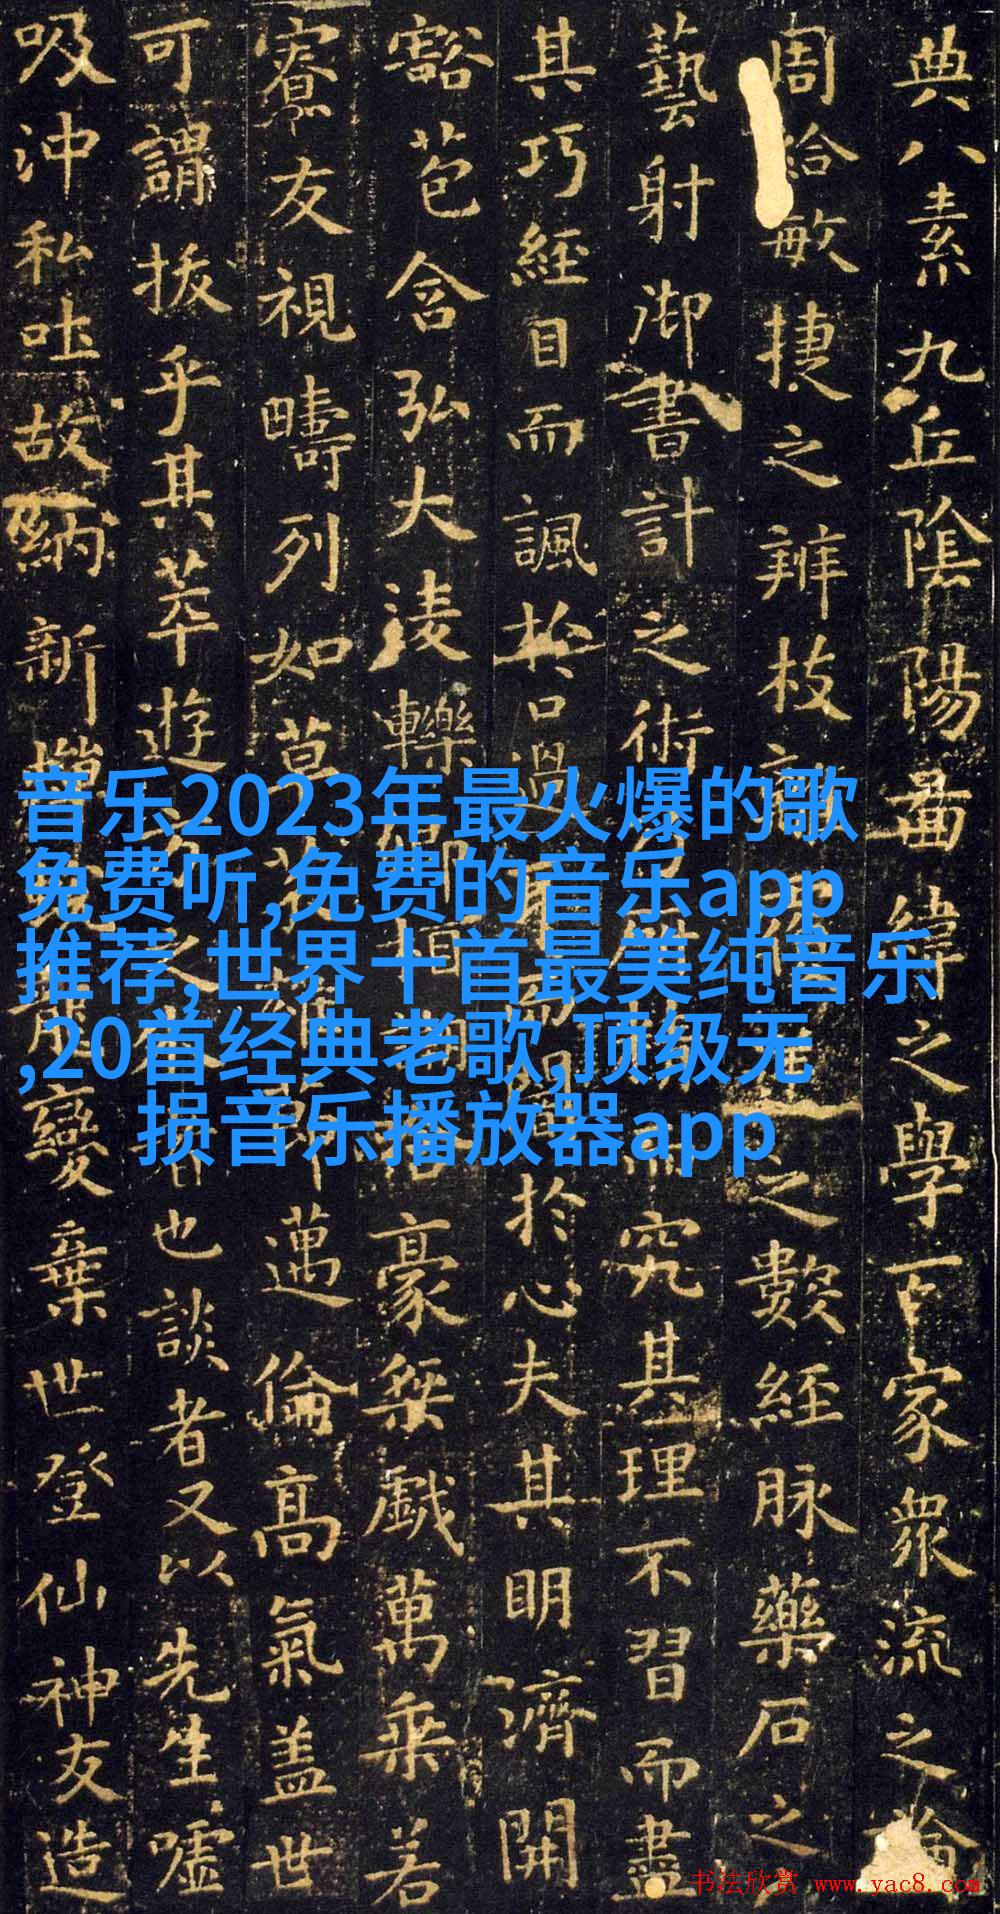 典八素九丘陰陽圖緯之學百家衆流之論
周給敏捷之辨枝之數經脉藥石之
藝射御書計之術而究其理不習而盡
其巧經目而諷於口過耳而闇於心夫其明濟開
豁苞含弘大淩轢卿相豪桀戲萬乘若
寮友視疇列如草邁倫高氣盖世
可謂拔乎其萃遊方之者也談者又以先生噓
吸沖和吐故納新變棄世登仙神友造
音乐2023年最火爆的歌
免费听,免费的音乐app
推荐,世界十首最美纯音乐
,20首经典老歌,顶级无
损音乐播放器app
书法欣赏 www.yac8.com